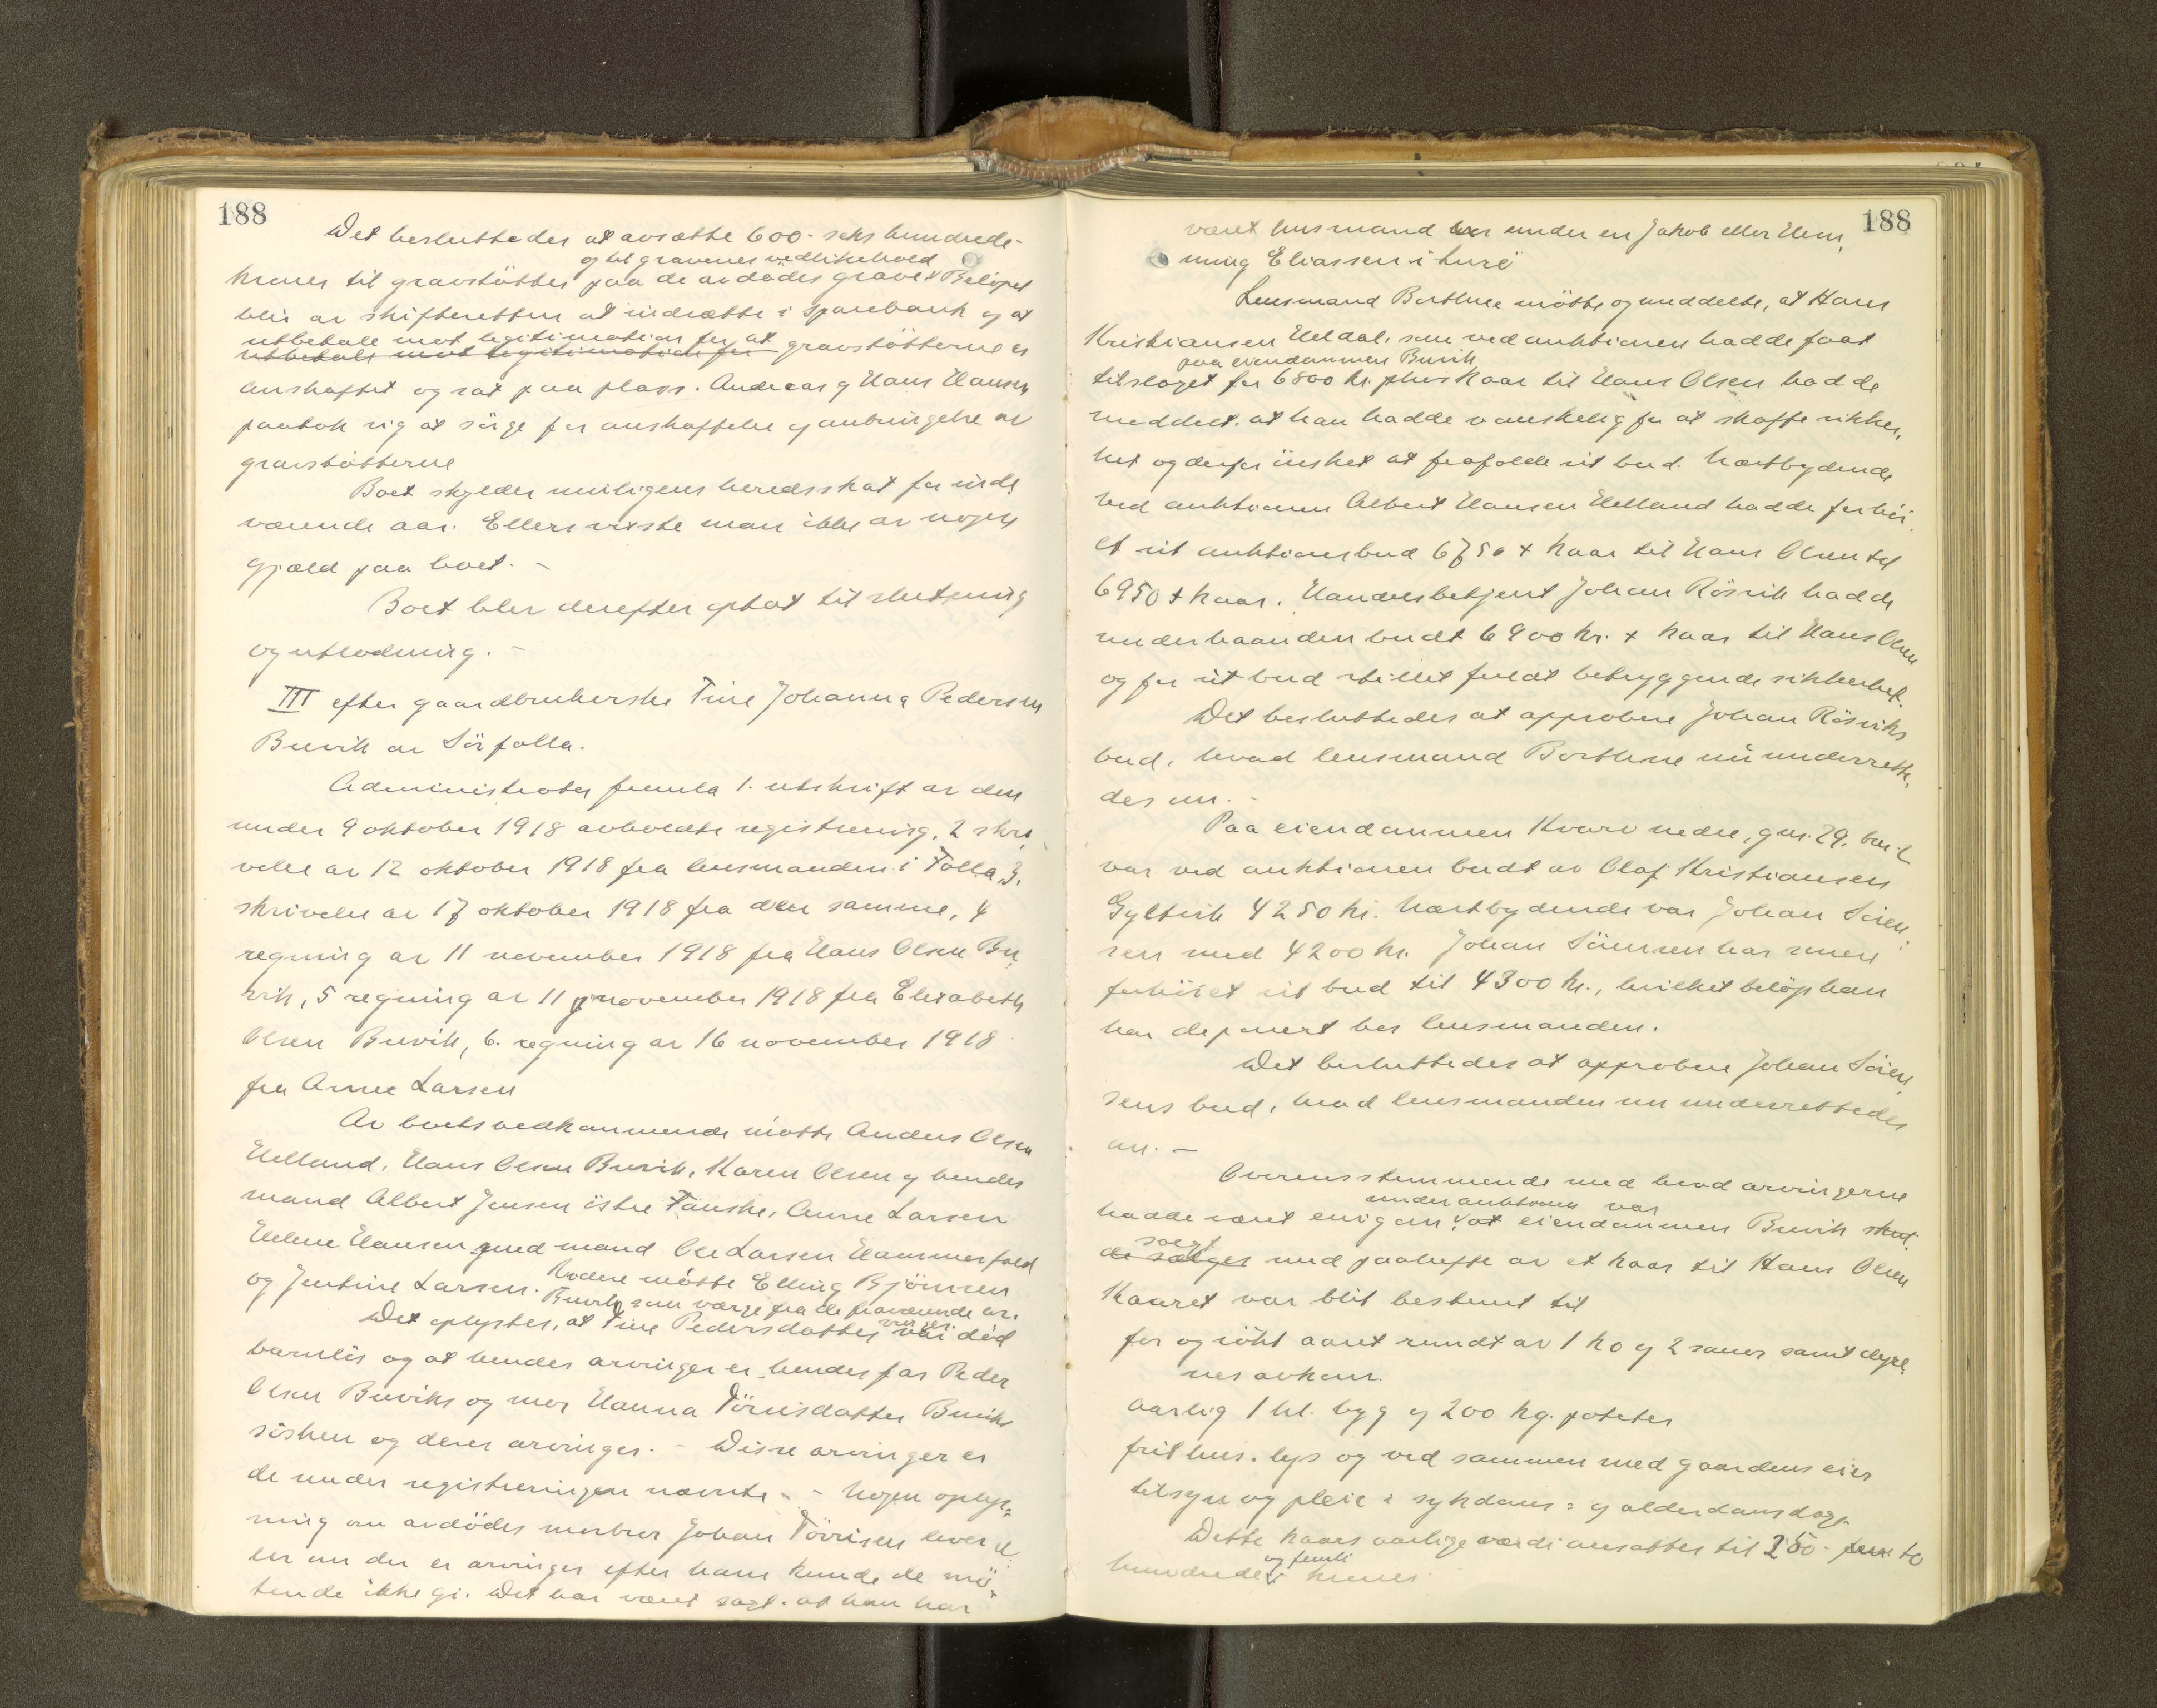 188
Det besluttedes at avsætte 600 - seks hundrede -
og til gravenes vedlikehold
kroner til gravstötter paa de avdödes grave. Belöpet
blir av skifteretten at indsætte i sparebank og at
utbetale mot legitimation for at gravstötterne er
utbetale mot legitimation for
anskaffet og sat paa plass. Andreas og Hans Hansen
paatok sig at sörge for anskaffelse og anbringelse av
gravstötterne
Boet skylder muligens heredsskat for inde
værende aar. Ellers visste man ikke av nogen
gjæld paa boet. -
Boet blev derefter optat til slutning
og utlodning. -
III efter gaardbrukerske Tine Johanna Pedersen
Buvik av Sörfolla.
Administrator fremla 1. utskrift av den
under 9 oktober 1918 avholdte registrering, 2 skri
velse av 12 oktober 1918 fra lensmanden i Folla, 3.
skrivelse av 17 oktober 1918 fra den samme, 4
regning av 11 november 1918 fra Hans Olsen Bu
vik, 5 regning av 11 november 1918 fra Elisabeth
Olsen Buvik, 6. regning av 16 november 1918
fra Anne Larsen
Av boets vedkommende mötte Anders Olsen
Helland, Hans Olsen Buvik, Karen Olsen og hendes
mand Albert Jensen östre Fauske, Anne Larsen
Helene Hansen med mand Ole Larsen Hammerfald
og Jentine Larsen. Videre mötte Elling Björnsen
Buvik som værge for de fraværende ar.
vinger.
Det oplystes, at Tine Pedersdatter var död
barnlös og at hendes arvinger er hendes far Peder
Olsen Buviks og mor Hanna Törrisdatter Buviks
sösken og deres arvinger. - Disse arvinger er
de under registreringen nævnte. - Nogen oplys=
ning om avdödes morbror Johan Törrisen lever el
ler om der er arvinger efter ham kunde de mö=
tende ikke gi. Det har været sagt, at han har
188
været husmand under en Jakob eller Hem
ming Eliassen i Luröi
Lensmand Borthne mötte og meddelte, at Hans
Kristiansen Heldal, som ved auktionen hadde faat
paa eiendommen Buvik
tilslaget for 6800 kr. plus kaar til Hans Olsen hadde
meddelt, at han hadde vanskelig for at skaffe sikker,
het og derfor önsket at frafalde sit bud. Næstbydende
ved auktionen Albert Hansen Helland hadde forhöi
et sit auktionsbud 6750 + kaar til Hans Olsen til
6950 + kaar. Handelsbetjent Johan Rösvik hadde
underhaanden budt 6900 kr. + kaar til Hans Olsen
og for sit bud stillet fuldt betryggende sikkerhet.
Det besluttedes at approbere Johan Rösviks
bud, hvad lensmand Borthne nu underrette,
des om. -
Paa eiendommen Kvarv nedre, gnr. 29. bnr. 2
var ved auktionen budt av Olaf Kristiansen
Gyltvik 4250 kr. Næstbydende var Johan Sören
sen med 4200 kr. Johan Sörensen har senere
forhöiet sit bud til 4300 kr., hvilket belöp han
har deponert hos lensmanden.
Det besluttedes at approbere Johan Sören
sens bud, hvad lensmanden nu underrettedes
om. -
Overensstemmende med hvad arvingerne
under auktionen var
hadde været enig om, at eiendommen Buvik skul
solgt
de sælges med paahefte av et kaar til Hans Olsen
Kauret var blit bestemt til
for og rökt aaret rundt av 1 ko og 2 sauer samt dyre
nes avkom.
aarlig 1 hl. byg og 200 kg. poteter
frit hus, lys og ved sammen med gaardens eier
tilsyn og pleie i sykdoms= og alderdomsdage.
Dette kaars aarlige værdi ansattes til 250 - to
og femti
hundrede kroner